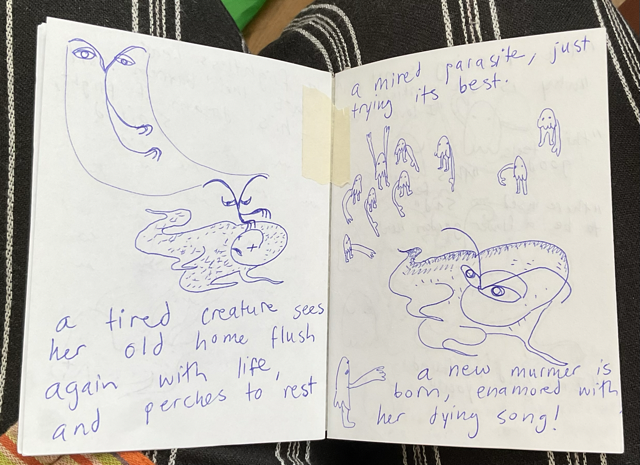 a tired creature sees
her old home flush
again with life,
and perches to rest
a mired parasite, just
trying its best.
a new murmer is
born, enamored with
her dying song!